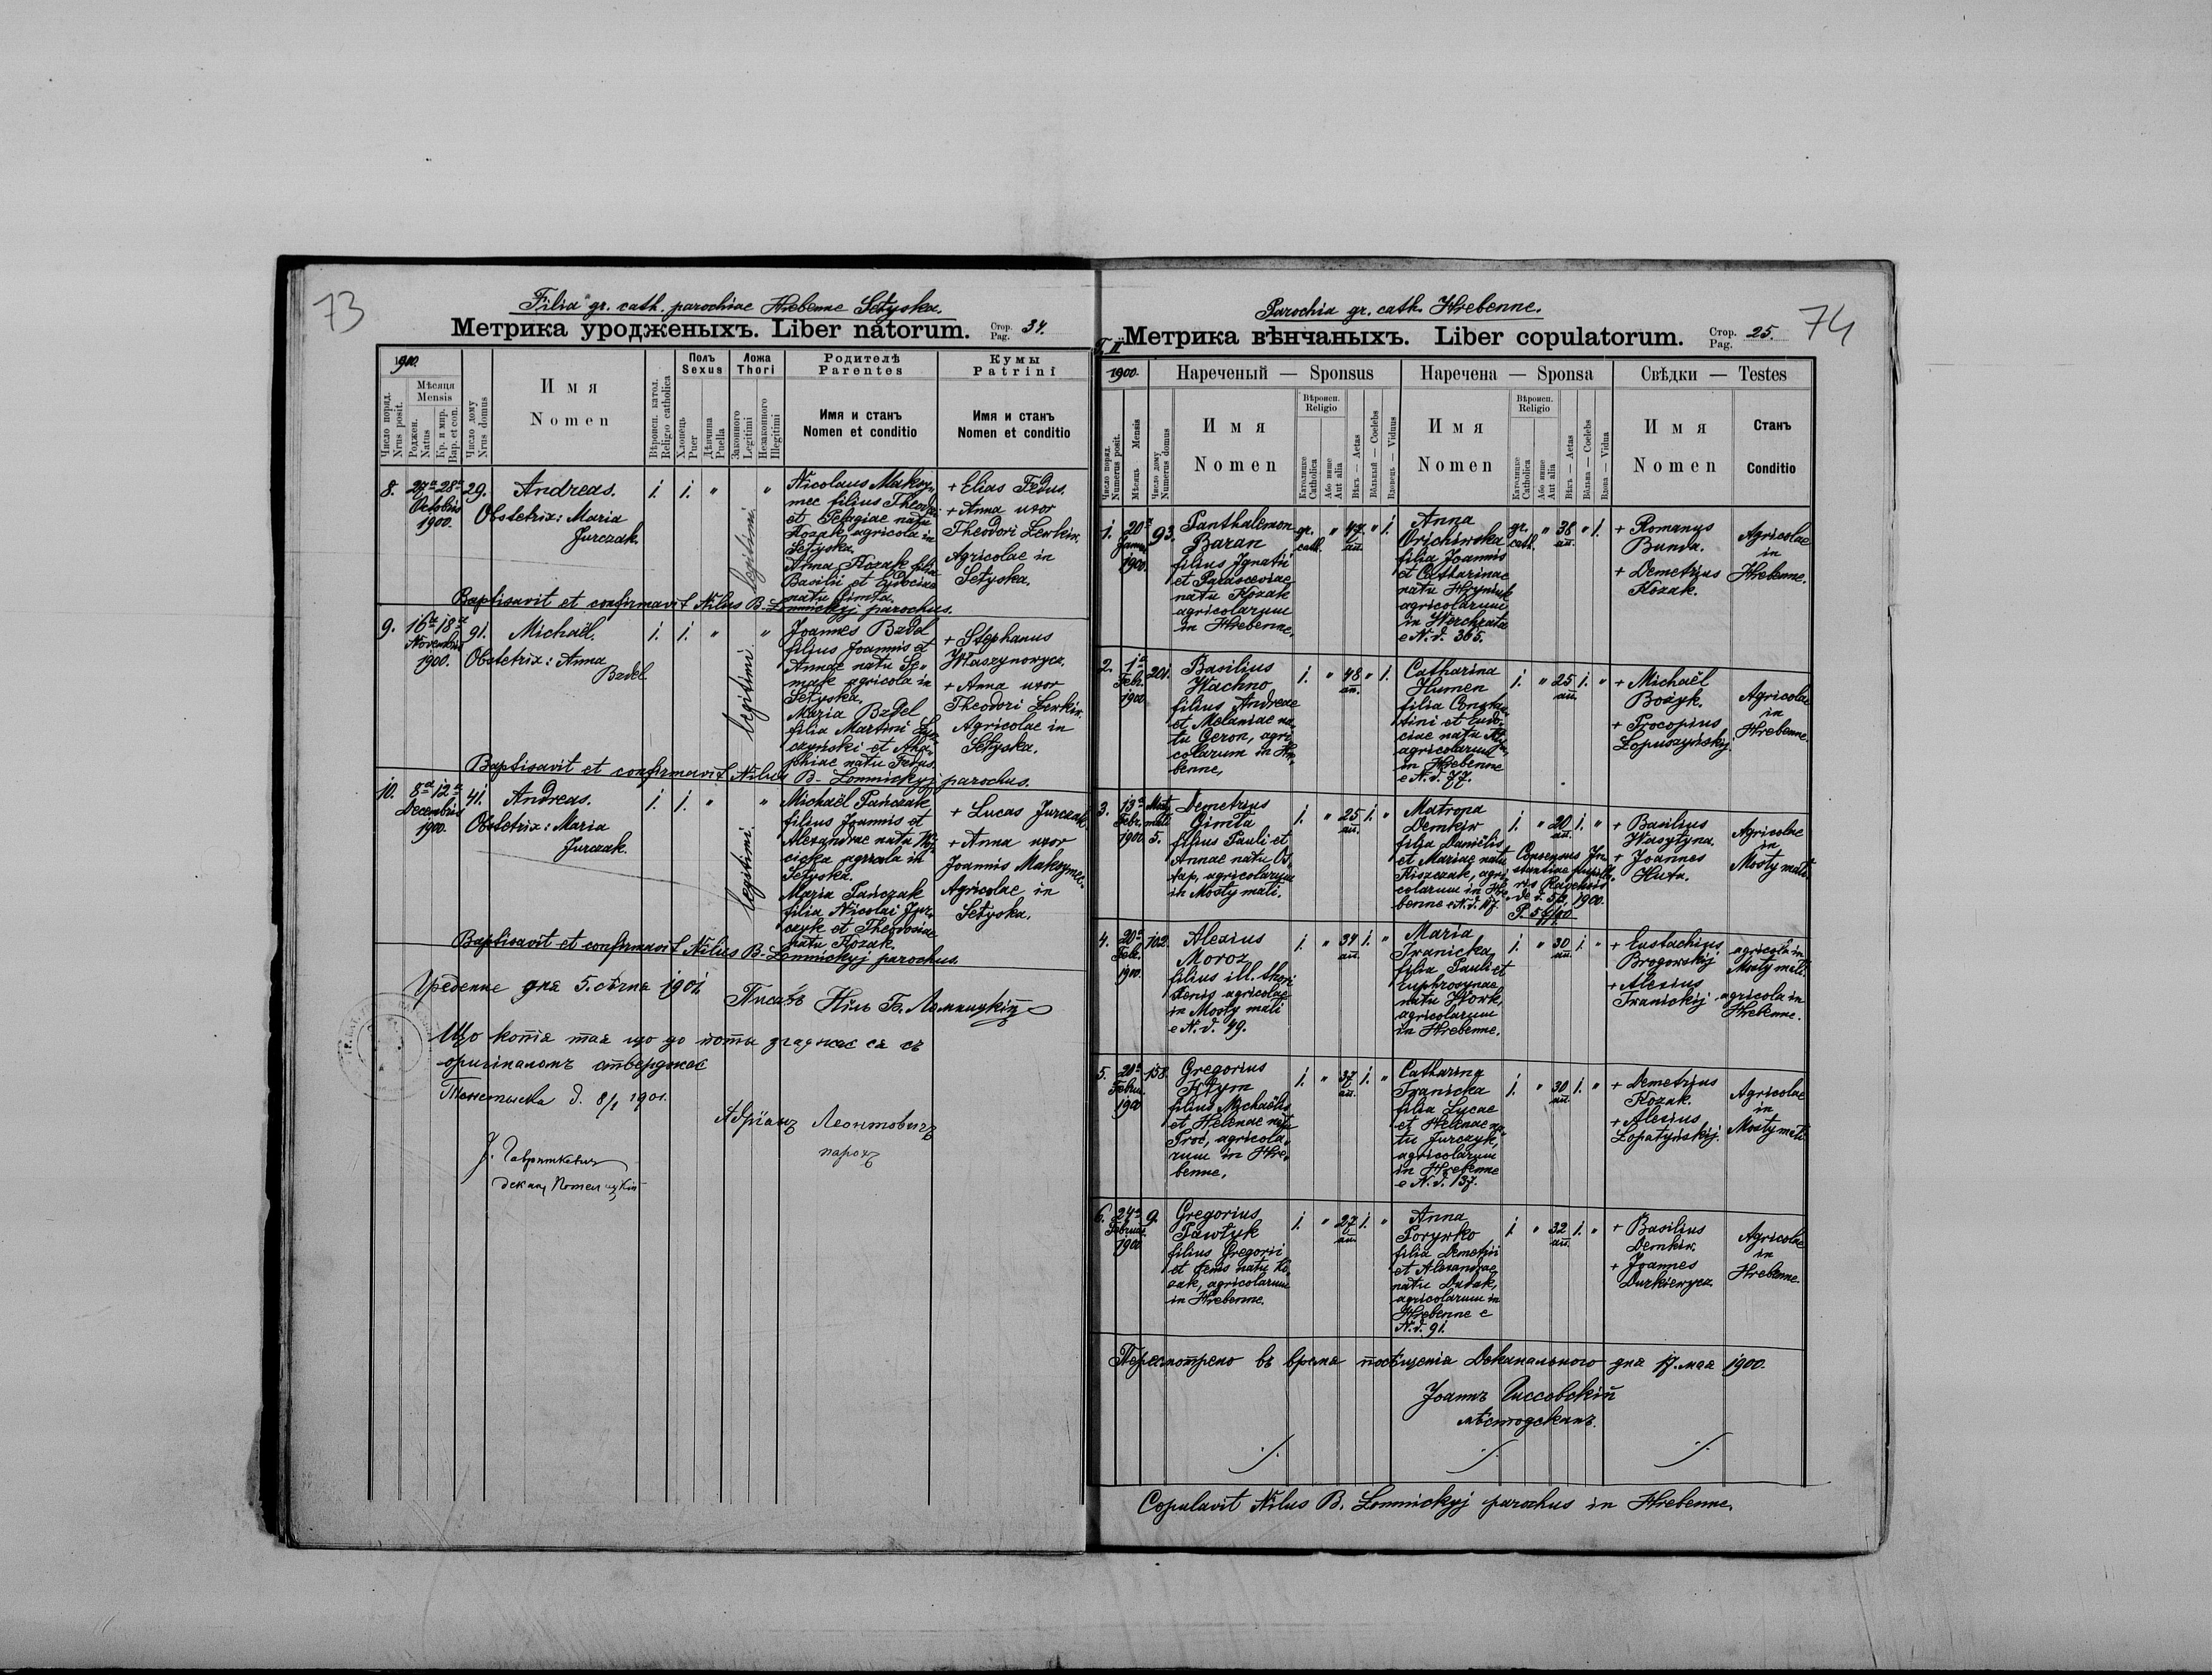 73
Filia gr. cath. parochiae Hrebenne Sełyska.
Метрика уродженыхъ. Liber natorum.
Стор.
Pag.
34.
1900.
Число поряд.
Nrus posit.
Мѣсяця
Mensis
Роджен.
Natus
Кр. и мѵр.
Bap. et con.
Число дому
Nrus domus
Имя
Nomen
Вѣроисп. катол.
Religio catholica
Полъ
Sexus
Хлопець
Puer
Дѣвчина
Puella
Ложа
Thori
Законного
Legitimi
Незаконного
Illegitimi
Родителѣ
Parentes
Имя и станъ
Nomen et conditio
Кумы
Patrini
Имя и станъ
Nomen et conditio
8.
27a 28a
Octobris
1900.
29.
Andreas.
Obstetrix: Maria
Jurczak.
1. 1. " "
legitimi.
Nicolaus Maksy-
mec filius Theodori
et Pelagiae natu
Kozak agricola in
Sełyska.
Anna Kozak filia
Basilii et Eudociae
natu Cimta.
+ Elias Fedus.
+ Anna uxor
Theodori Lewkiw.
Agricolae in
Sełyska.
Baptisavit et confirmavit Nilus B. Łomnickyj parochus.
9.
16a 18a
Novembris
1900.
91.
Michaël.
Obstetrix: Anna
Bzdel
1. 1. " "
legitimi.
Joannes Bzdel
filius Joannis et
Annae natu Se-
mak agricola in
Sełyska.
Maria Bzdel
filia Martini
et
natu Fedus.
+ Stephanus
Waszynowycz.
+ Anna uxor
Theodori Lewkiw.
Agricolae in
Sełyska.
Baptisavit et confirmavit Nilus B. Łomnickyj parochus.
10.
8a 12a
Decembris
1900.
41.
Andreas.
Obstetrix: Maria
Jurczak.
1. 1. " "
legitimi.
Michaël Pańczak
filius Joannis et
Alexandrae natu
agricola in
Sełyska.
Maria Pańczak
filia Nicolai Jur-
czyk et Theodosiae
natu Kozak.
+ Lucas Jurczak
+ Anna uxor
Joannis Maksymec.
Agricolae in
Sełyska.
Baptisavit et confirmavit Nilus B. Łomnickyj parochus.
Гребенне дня 5. сѣчня 1901.
Писавъ Нілъ Б. Ломницкій
Що копія тая що до ноты згаджає ся съ
оригіналомъ стверджає
д. 8/1 1901.
Адріанъ Леонтовичъ
парохъ
деканъ
74
Parochia gr. cath. Hrebenne.
T. II
Метрика вѣнчаныхъ. Liber copulatorum.
Стор.
Pag.
25.
1900.
Нареченый — Sponsus
Наречена — Sponsa
Свѣдки — Testes
Число поряд.
Numerus posit.
Мѣсяць — Mensis
Число дому
Numerus domus
Имя
Nomen
Вѣроисп.
Religio
Католицке
Catholica
Або инше
Aut alia
Вѣкъ — Aetas
Вольный — Coelebs
Вдовець — Viduus
Имя
Nomen
Вѣроисп.
Religio
Католицке
Catholica
Або инше
Aut alia
Вѣкъ — Aetas
Вольна — Coelebs
Вдова — Vidua
Имя
Nomen
Станъ
Conditio
1.
20a
Januar.
1900.
93.
Panthalemon
Baran
filius Ignatii
et Parasceviae
natu Kozak
agricolarum
in Hrebenne.
gr.
cath.
" 47 " 1.
an.
Anna
Orichiwska
filia Joannis
et Catharinae
natu Hryniuk
agricolarum
in Werchrata
e N. d. 365.
gr.
cath.
" 38 " 1.
an.
+ Romanus
Bunda.
+ Demetrius
Kozak.
Agricolae
in
Hrebenne.
2.
1a
Febr.
1900
201.
Basilius
Wachno
filius Andreae
et Melaniae na-
tu Ceron, agri-
colarum in Hre-
benne,
1. " 48 " 1.
an.
Catharina
Humen
filia Constan-
tini et Eudo-
ciae natu
agricolarum
in Hrebenne
e N. d. 77.
1. " 25 1. "
an.
+ Michaël
Bożyk.
+ Procopius
Łopuszyńskij.
Agricolae
in
Hrebenne.
3.
13a
Febr.
1900
Mosty
mali
5.
Demetrius
Cimta
filius Pauli et
Annae natu Os-
tap, agricolarum
in Mosty mali.
1. " 25 1. "
an.
Matrona
Demkiw
filia Daniëlis
et Mariae natu
Kiszczak, agri-
colarum in Hre-
benne e N. d. 117.
1. " 20 1. "
an.
Consensus In-
stantiae pupilla-
ris Ravensis
de d. 5/2 1900.
P. 59/00
+ Basilius
Wasylyna.
+ Joannes
Huta.
Agricolae
in
Mosty mali.
4.
20a
Febr.
1900
102.
Alexius
Moroz
filius ill. thori
Xenis agricolae
in Mosty mali
e N. d. 49.
1. " 34 1. "
an.
Maria
Iwanicka
filia Pauli et
Euphrosynae
natu Wowk,
agricolarum
in Hrebenne.
1. " 30 1. "
an.
+ Eustachius
Brogowskij
+ Alexius
Iwanickij
agricola in
Mosty mali.
agricola in
Hrebenne.
5.
20a
Febru.
1900
158.
Gregorius
Hrym
filius Michaëlis
et Helenae natu
Proć, agricola-
rum in Hre-
benne.
1. " 37 1. "
an.
Catharina
Iwanicka
filia Lucae
et Helenae na-
tu Jurczyk,
agricolarum
in Hrebenne
e N. d. 137.
1. " 30 1. "
an.
+ Demetrius
Kozak.
+ Alexius
Łopatyńskij.
Agricolae
in
Mosty mali.
6.
24a
Februar.
1900
9.
Gregorius
Pawłyk
filius Gregorii
et Xenis natu Ko-
zak, agricolarum
in Hrebenne.
1. " 27 1. "
an.
Anna
Porywko
filia Demetrii
et Alexandrae
natu Dudak,
agricolarum in
Hrebenne e
N. d. 91.
1. " 32 1. "
an.
+ Basilius
Demkiw.
+ Joannes
Durkiewycz.
Agricolae
in
Hrebenne.
Пересмотрено въ время посѣщенія Деканального дня 17. мая 1900.
Іоаннъ Чиссовскій
мѣстодеканъ.
Copulavit Nilus B. Łomnickyj parochus in Hrebenne.